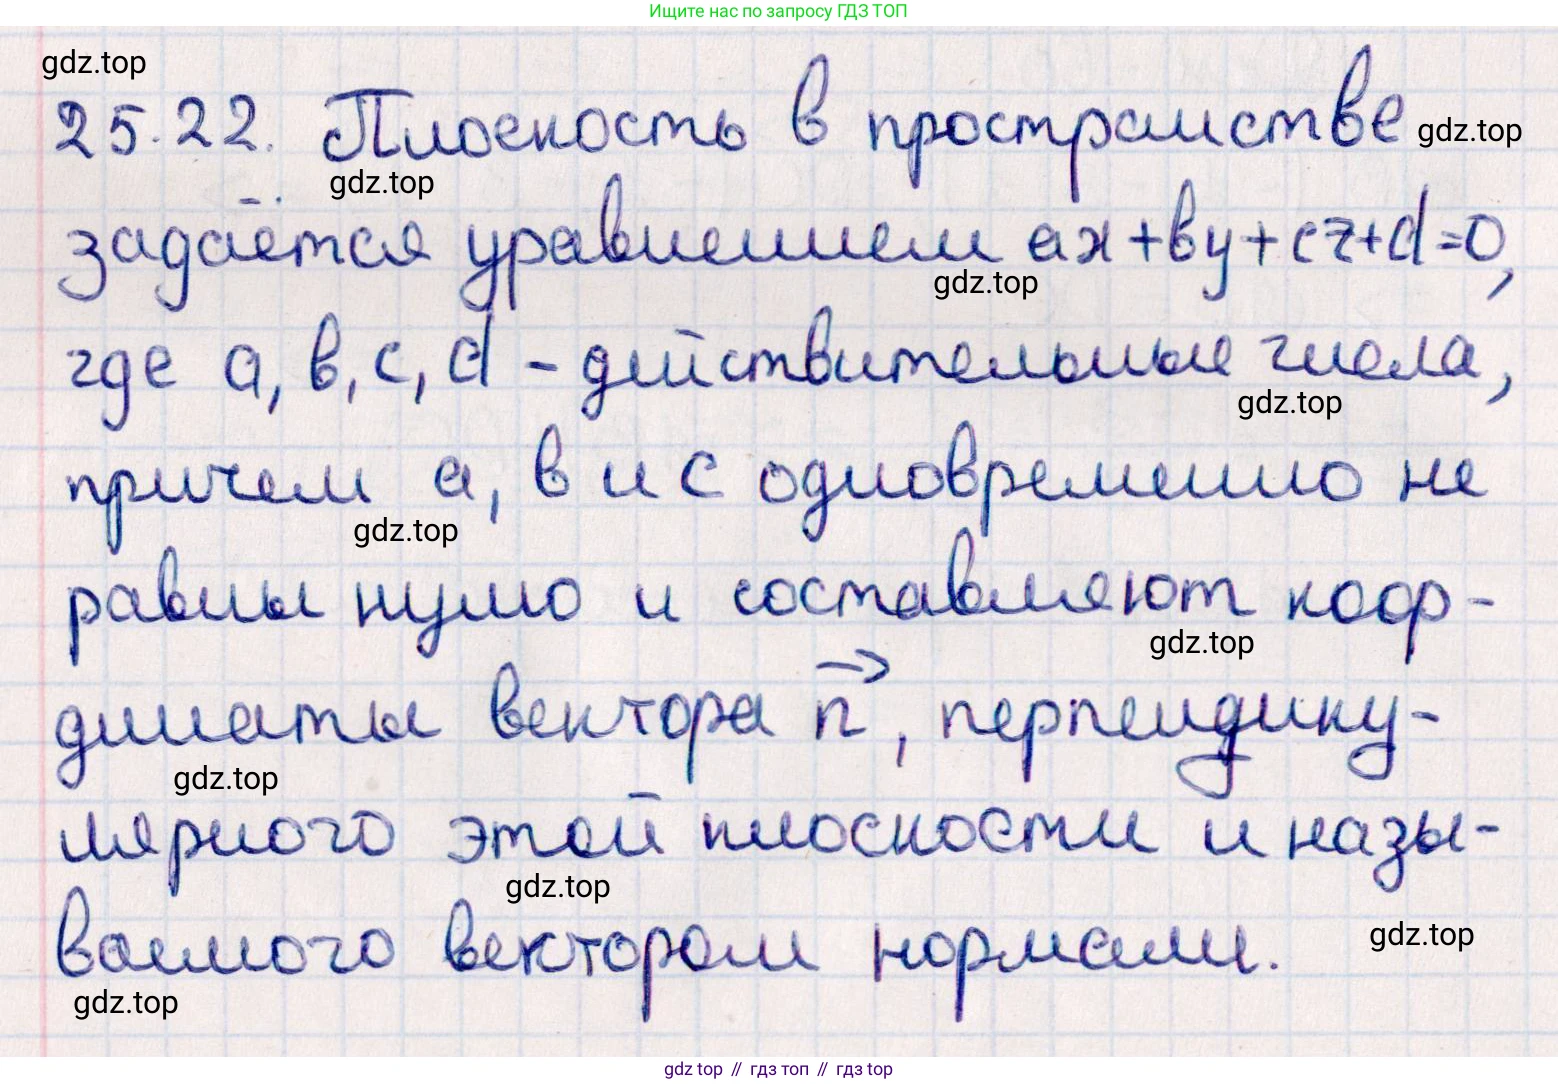 Ищите нас по запросу ГДЗ ТОП
gdz.top
25.22. Плоскость в пространстве gdz.top
gdz.top
задаётся уравнением ax+by+cz+d=0,
gdz.top
где a, b, c, d - действительные числа,
gdz.top
причем a, b и c одновременно не
gdz.top
равны нулю и составляют коор-
gdz.top
динаты вектора n⃗, перпендику-
gdz.top
лярного этой плоскости и назы-
gdz.top
ваемого вектором нормали. gdz.top
gdz.top
gdz top // гдз топ // гдз top